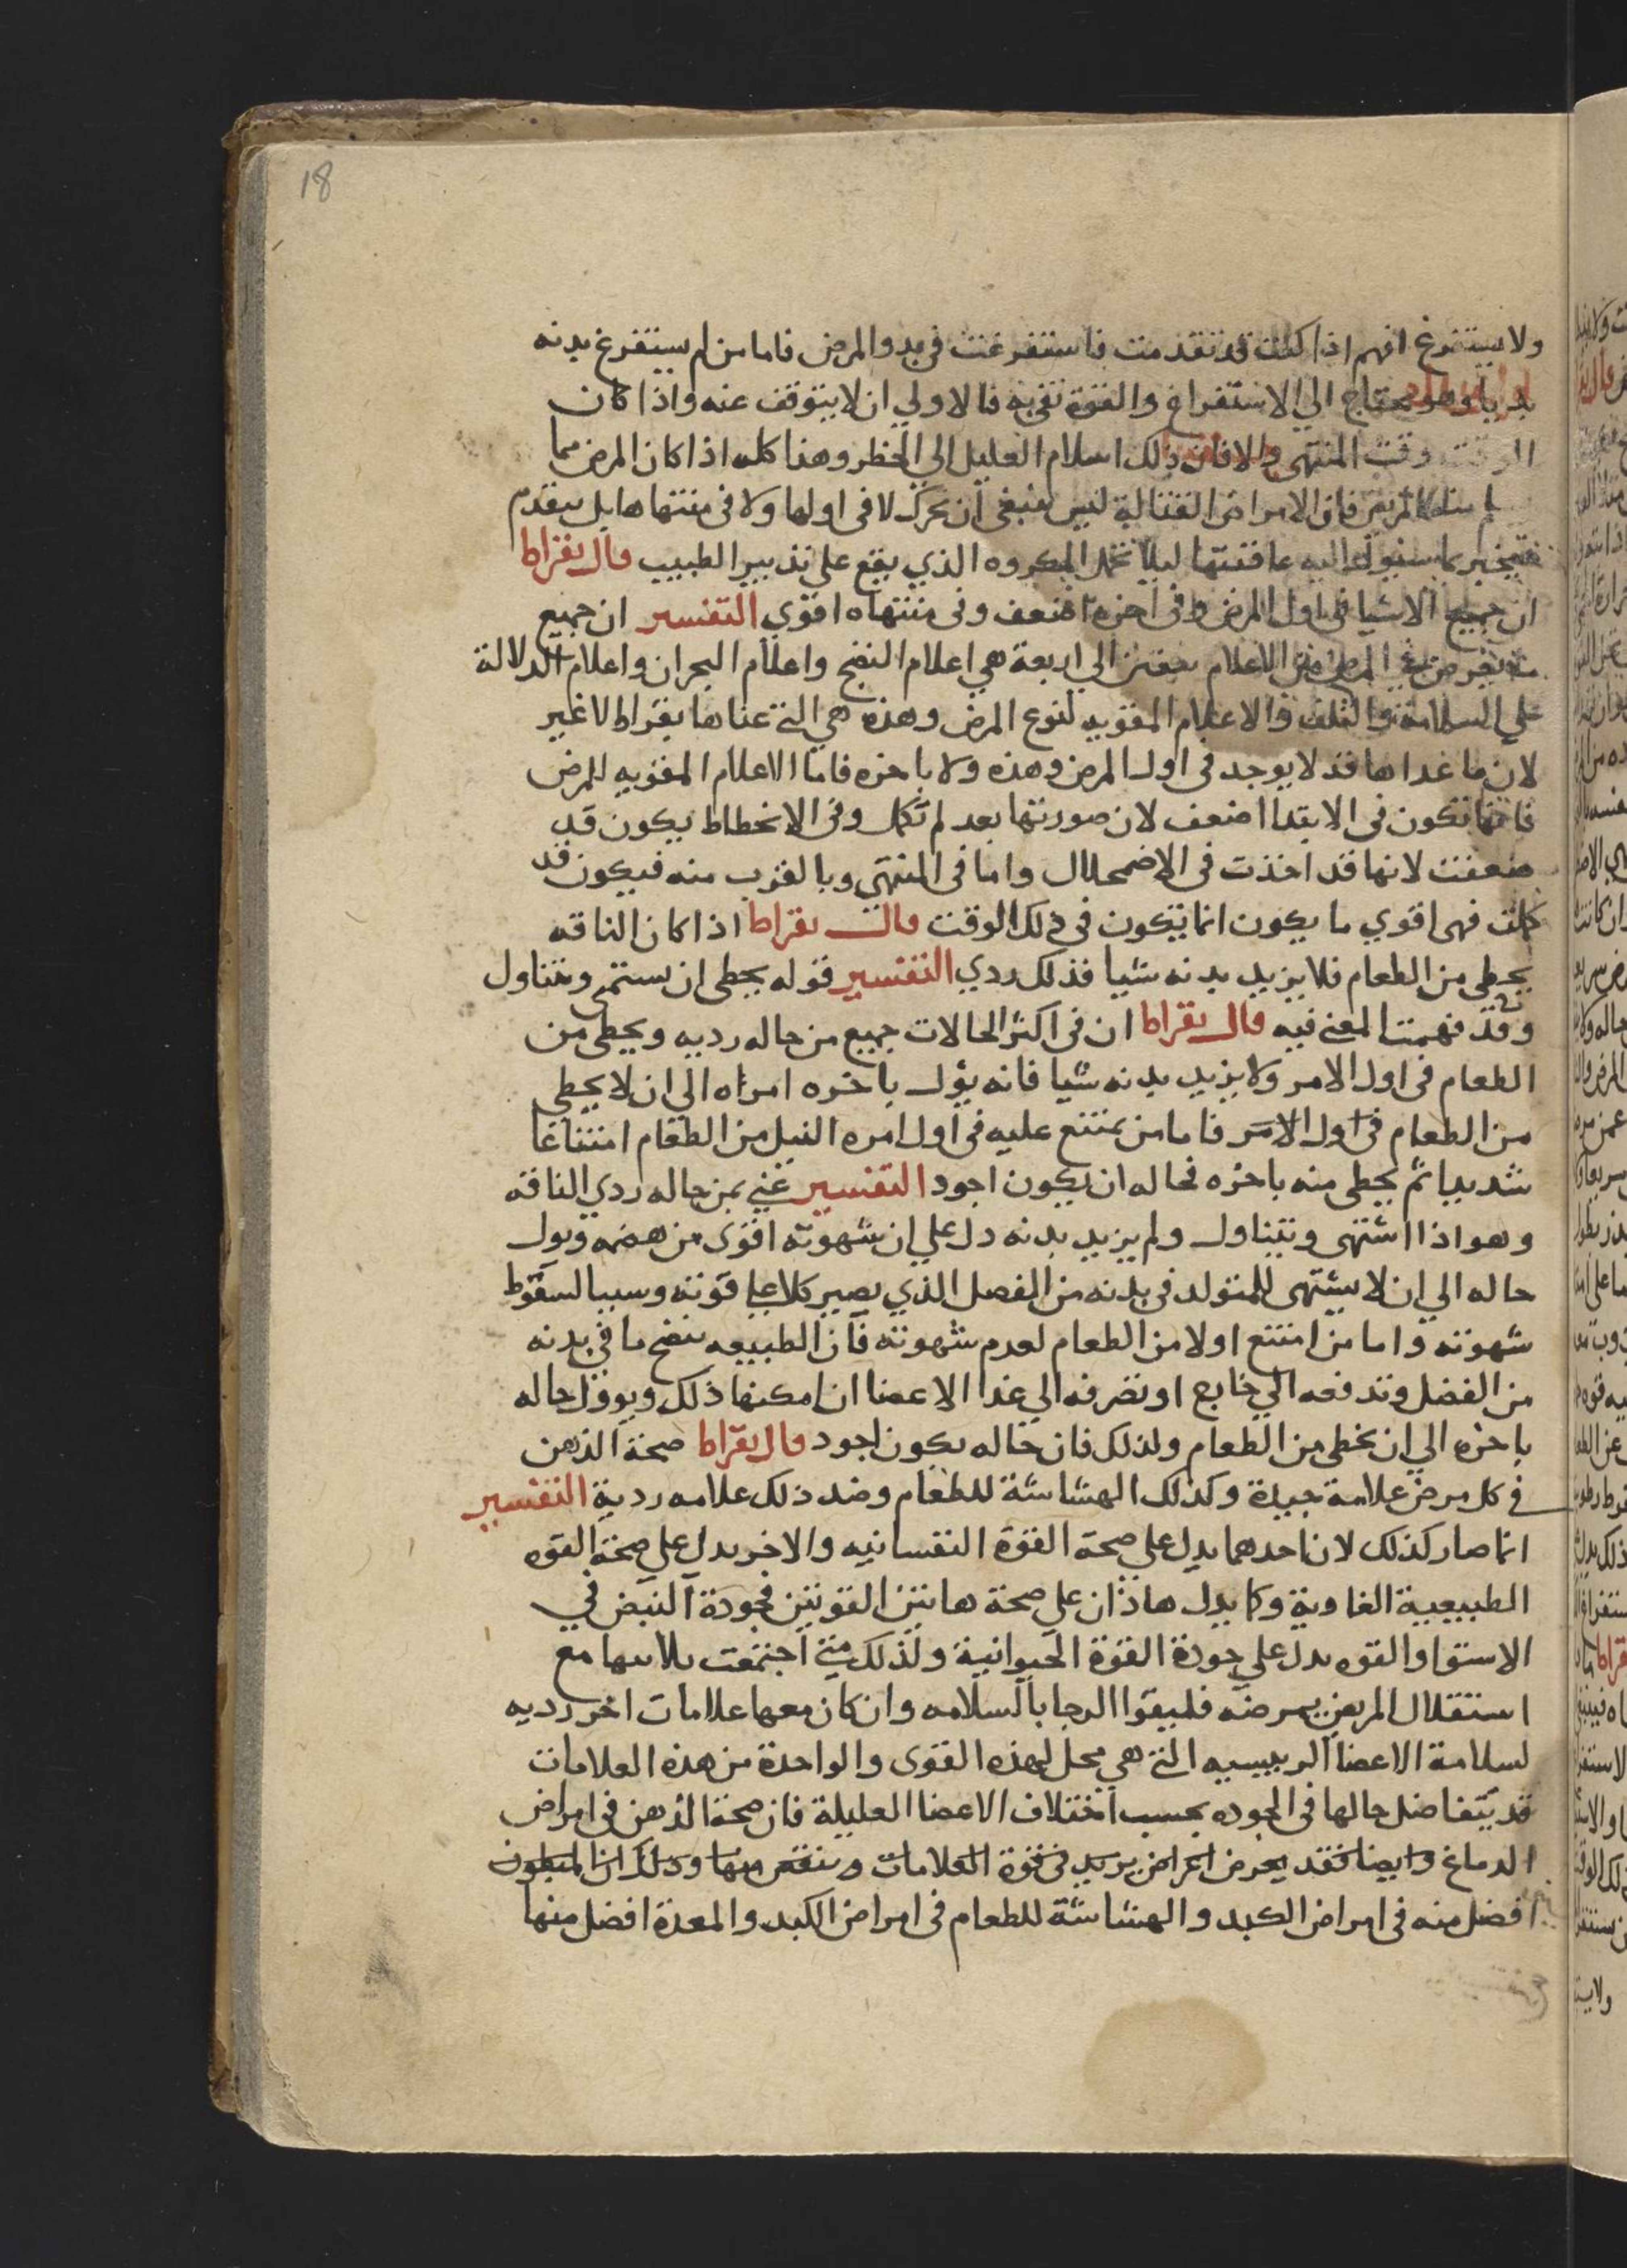 18
ولا يستفرغ افهم اذا كنت قد تقدمت فاستفرغت في بدو المرض فاما من لم يستفرغ بدنه
بديا وهو محتاج الي الاستفراغ والقوة تفي به فالاولي ان لا يتوقف عنه واذا كان
الوقت وقت المنتهى والا فان ذلك اسلام العليل الي الخطر وهذا كله اذا كان المرض مما
فان الامراض القتالة ليس ينبغي ان تحرك لا في اولها ولا في منتهاها بل يتقدم
فيخبر بما سيول اليه عاقبتها ليلا المكروه الذي يقع على تدبير الطبيب قال بقراط
ان جميع الاشيا في اول المرض وفي اخره اضعف وفي منتهاه اقوي التفسير ان جميع
الاعلام الي اربعة هي اعلام النضج واعلام البحران واعلام الدلالة
علي السلامة والتلف والاعلام المقويه لنوع المرض وهذه هي التي عناها بقراط لا غير
لان ما عداها قد لا يوجد في اول المرض وهذه ولا باخره فاما الاعلام المقويه للمرض
فانها تكون في الابتدا اضعف لان صورتها بعد لم تكمل وفي الانحطاط يكون قد
ضعفت لانها قد اخذت في الاضمحلال واما في المنتهي وبالقرب منه فيكون قد
كملت فهي اقوي ما يكون انما يتكون في ذلك الوقت قال بقراط اذا كان الناقه
يحظي من الطعام فلا يزيد بدنه شيا فذلك ردي التفسير قوله يحظي ان يستمتع ويتناول
وقد فهمت المعني فيه قال بقراط ان في اكثر الحالات جميع من حاله رديه ويحظي من
الطعام في اول الامر ولا يزيد بدنه شيا فانه يؤل باخره امراه الي ان لا يحظي
من الطعام في اول الامر فاما من يمتنع عليه في اول امره النيل من الطعام امتناعا
شديدا ثم يحظي منه باخره فحاله ان يكون اجود التفسير عني بمن حاله ردي الناقه
وهو اذا اشتهى ويتناول ولم يزيد بدنه دل علي ان شهوته اقوى من هضمه ويول
حاله الي ان لا يشتهى للمتولد في بدنه من الفضل الذي يصير كلا علي قوته وسببا لسقوط
شهوته واما من امتنع اولا من الطعام لعدم شهوته فان الطبيعه تنضج ما في بدنه
من الفضل وتدفعه الي خارج او تصرفه الي غذا الاعضا ان امكنها ذلك ويوول حاله
باخره الي ان يحظي من الطعام ولذلك فان حاله يكون اجود قال بقراط صحة الذهن
في كل مرض علامة جيدة وكذلك الهشاشة للطعام وضد ذلك علامه ردية التفسير
انما صار كذلك لان احدهما يدل علي صحة القوة النفسانيه والاخر يدل علي صحة القوه
الطبيعية الغاوية وكما يدل هاذان علي صحة هاتين القوتين فجودة النبض في
الاستوا والقوه يدل علي جودة القوة الحيوانية ولذلك متي اجتمعت ثلاثتها مع
استقلال المريض بمرضه فليقوا الرجا بالسلامه وان كان معها علامات اخر رديه
لسلامة الاعضا الرييسيه التي هي محل لهذه القوى والواحدة من هذه العلامات
قد يتفاضل حالها في الجوده بحسب اختلاف الاعضا العليلة فان صحة الذهن في امراض
الدماغ وايضا فقد يعرض اعراض يزيد في قوة العلامات وينقص منها وذلك ان المبطون
افضل منه في امراض الكبد والهشاشة للطعام في امراض الكبد والمعدة افضل منها